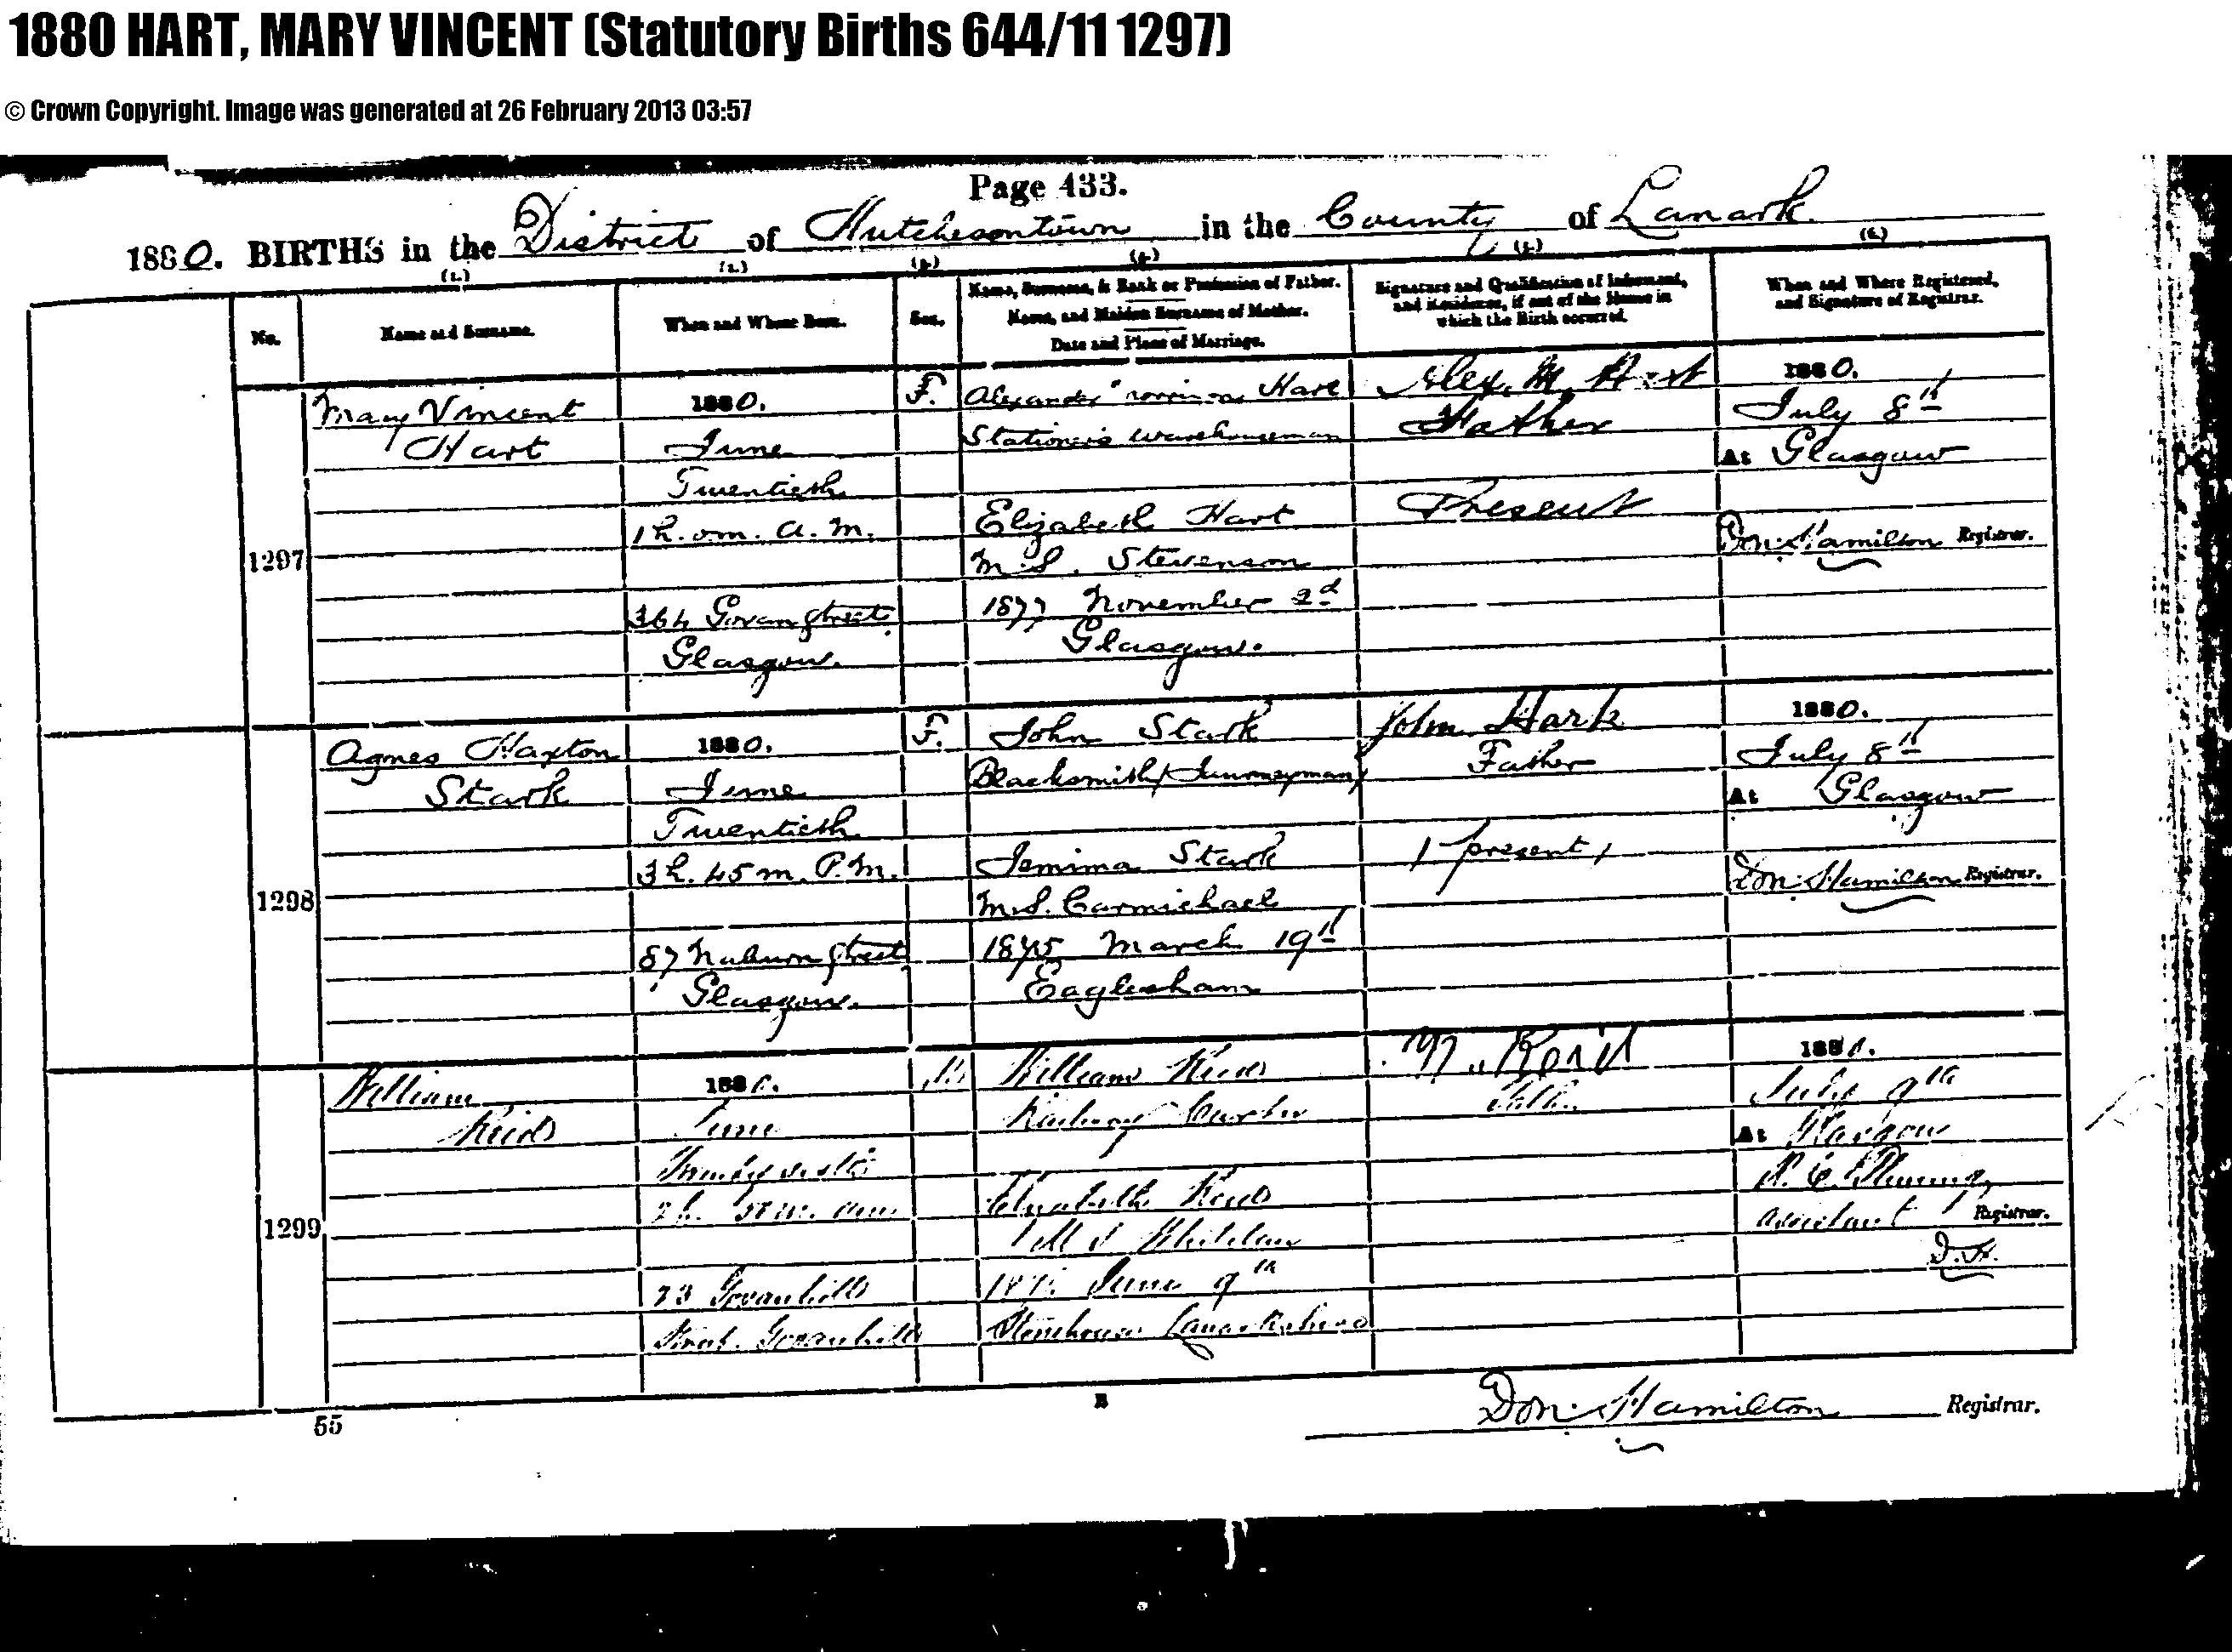 1880 HART, MARY VINCENT (Statutory Births 644/11 1297)
© Crown Copyright. Image was generated at 26 February 2013 03:57
Page 433.
1880. BIRTHS in the District of Hutchesontown in the County of Lanark
(1.) (2.) (3.) (4.) (5.) (6.)
No.
Name and Surname.
When and Where Born.
Sex.
Name, Surname, & Rank or Profession of Father.
Name, and Maiden Surname of Mother.
Date and Place of Marriage.
Signature and Qualification of Informant,
and Residence, if out of the House in
which the Birth occurred.
When and Where Registered,
and Signature of Registrar.
1297
Mary Vincent
Hart
1880.
June
Twentieth
1 h. 0 m. A. M.
364 Govan Street
Glasgow.
F.
Alexander Hart
Stationer's Warehouseman
Elizabeth Hart
M.S. Stevenson
1877 November 2d
Glasgow.
Alex. M. Hart
Father
Present
1880.
July 8th
At Glasgow
Don. Hamilton Registrar.
1298
Agnes Haxton
Stark
1880.
June
Twentieth
3 h. 45 m. P.M.
87 Naburn Street
Glasgow.
F.
John Stark
Blacksmith (Journeyman)
Jemima Stark
M.S. Carmichael
1875 March 19th
Eaglesham
John Stark
Father
(present)
1880.
July 8th
At Glasgow
Don. Hamilton Registrar.
1299
William
Reid
1880.
June
23 Govanhill
Street Govanhill
William Reid
Railway
Elizabeth Reid
M.S. Whitelaw
June 9th
Stonehouse Lanarkshire
W. Reid
Father
1880.
July 9th
At Glasgow
Assistant Registrar.
D.H.
55
Don. Hamilton Registrar.